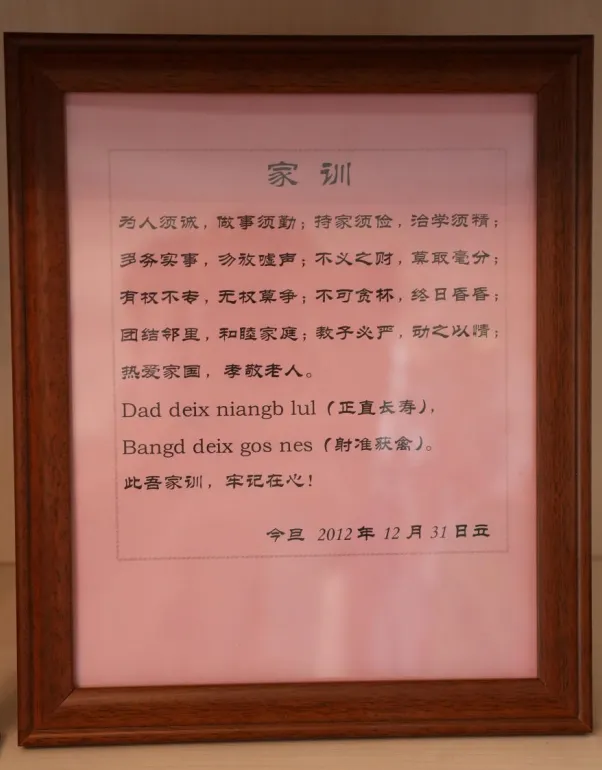 家 训
为人须诚，做事须勤；持家须俭，治学须精；
多务实事，勿放嘘声；不义之财，莫取毫分；
有权不专，无权莫争；不可贪杯，终日昏昏；
团结邻里，和睦家庭；教子必严，动之以情；
热爱家国，孝敬老人。
Dad deix niangb lul（正直长寿），
Bangd deix gos nes（射准获禽）。
此吾家训，牢记在心！
今旦 2012年 12 月 31 日立